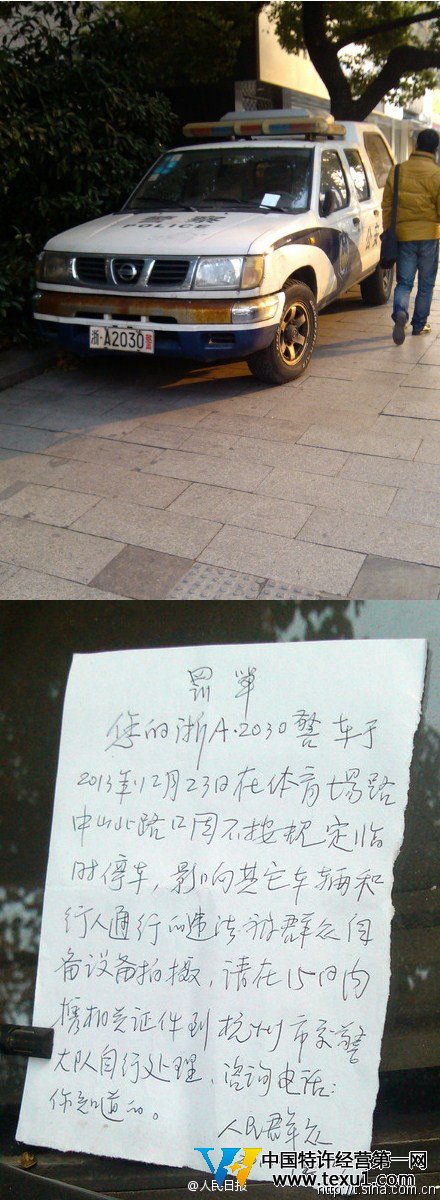 警察
POLICE
公安
浙·A2030警
罚单
您的浙A·2030警车于
2013年12月23日在体育场路
中山北路口因不按规定临
时停车，影响其它车辆和
行人通行的违法被群众自
备设备拍摄，请在15日内
携相关证件到杭州市交警
大队自行处理，咨询电话：
你知道的。
人民群众
中国特许经营第一网
www.texu1.com
@人民日报
http://e.sina.com.cn